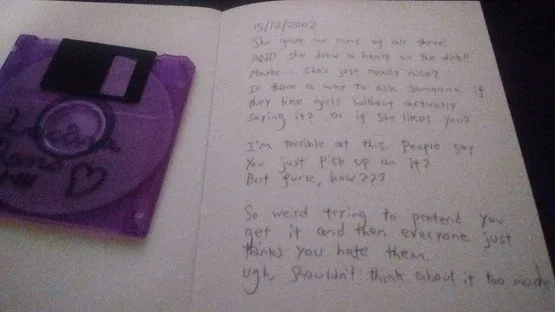 15/12/2002
She gave me roms of all three!
AND she drew a heart on the disk!!
Maybe... She's just really nice?
Is there a way to ask someone if
they like girls without actually
saying it? Or if She likes you?
I'm terrible at this. People say
You just pick up on it?
But fuck, how???
So weird trying to pretend you
get it and then everyone just
thinks you hate them.
ugh, Shouldn't think about it too much